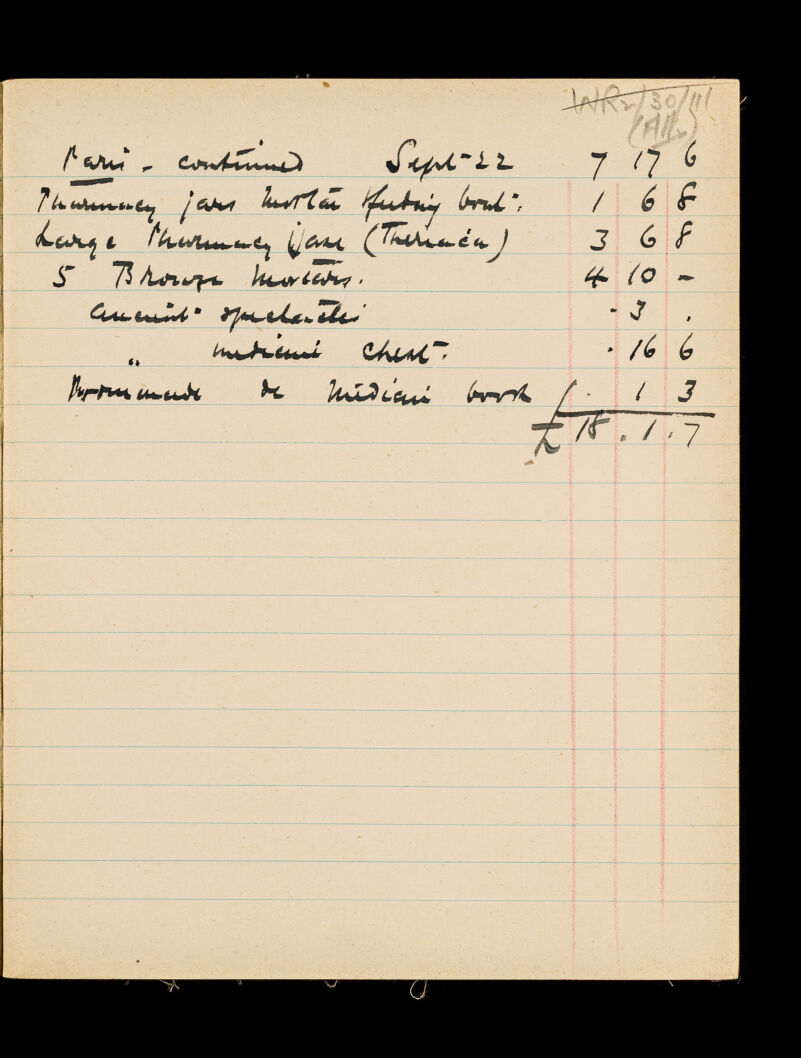 WR2/30/111
(All)
Paris - continued Sept 22 7 17 6
Pharmacy jars Mortar feeding boat. 1 6 8
Large Pharmacy Vase (Theriaca) 3 6 8
5 Bronze Mortars. 4 10 -
Ancient spectacles . 3 .
" medicine chest. . 16 6
de Medicin book . 1 3
£ 18 . 1 . 7